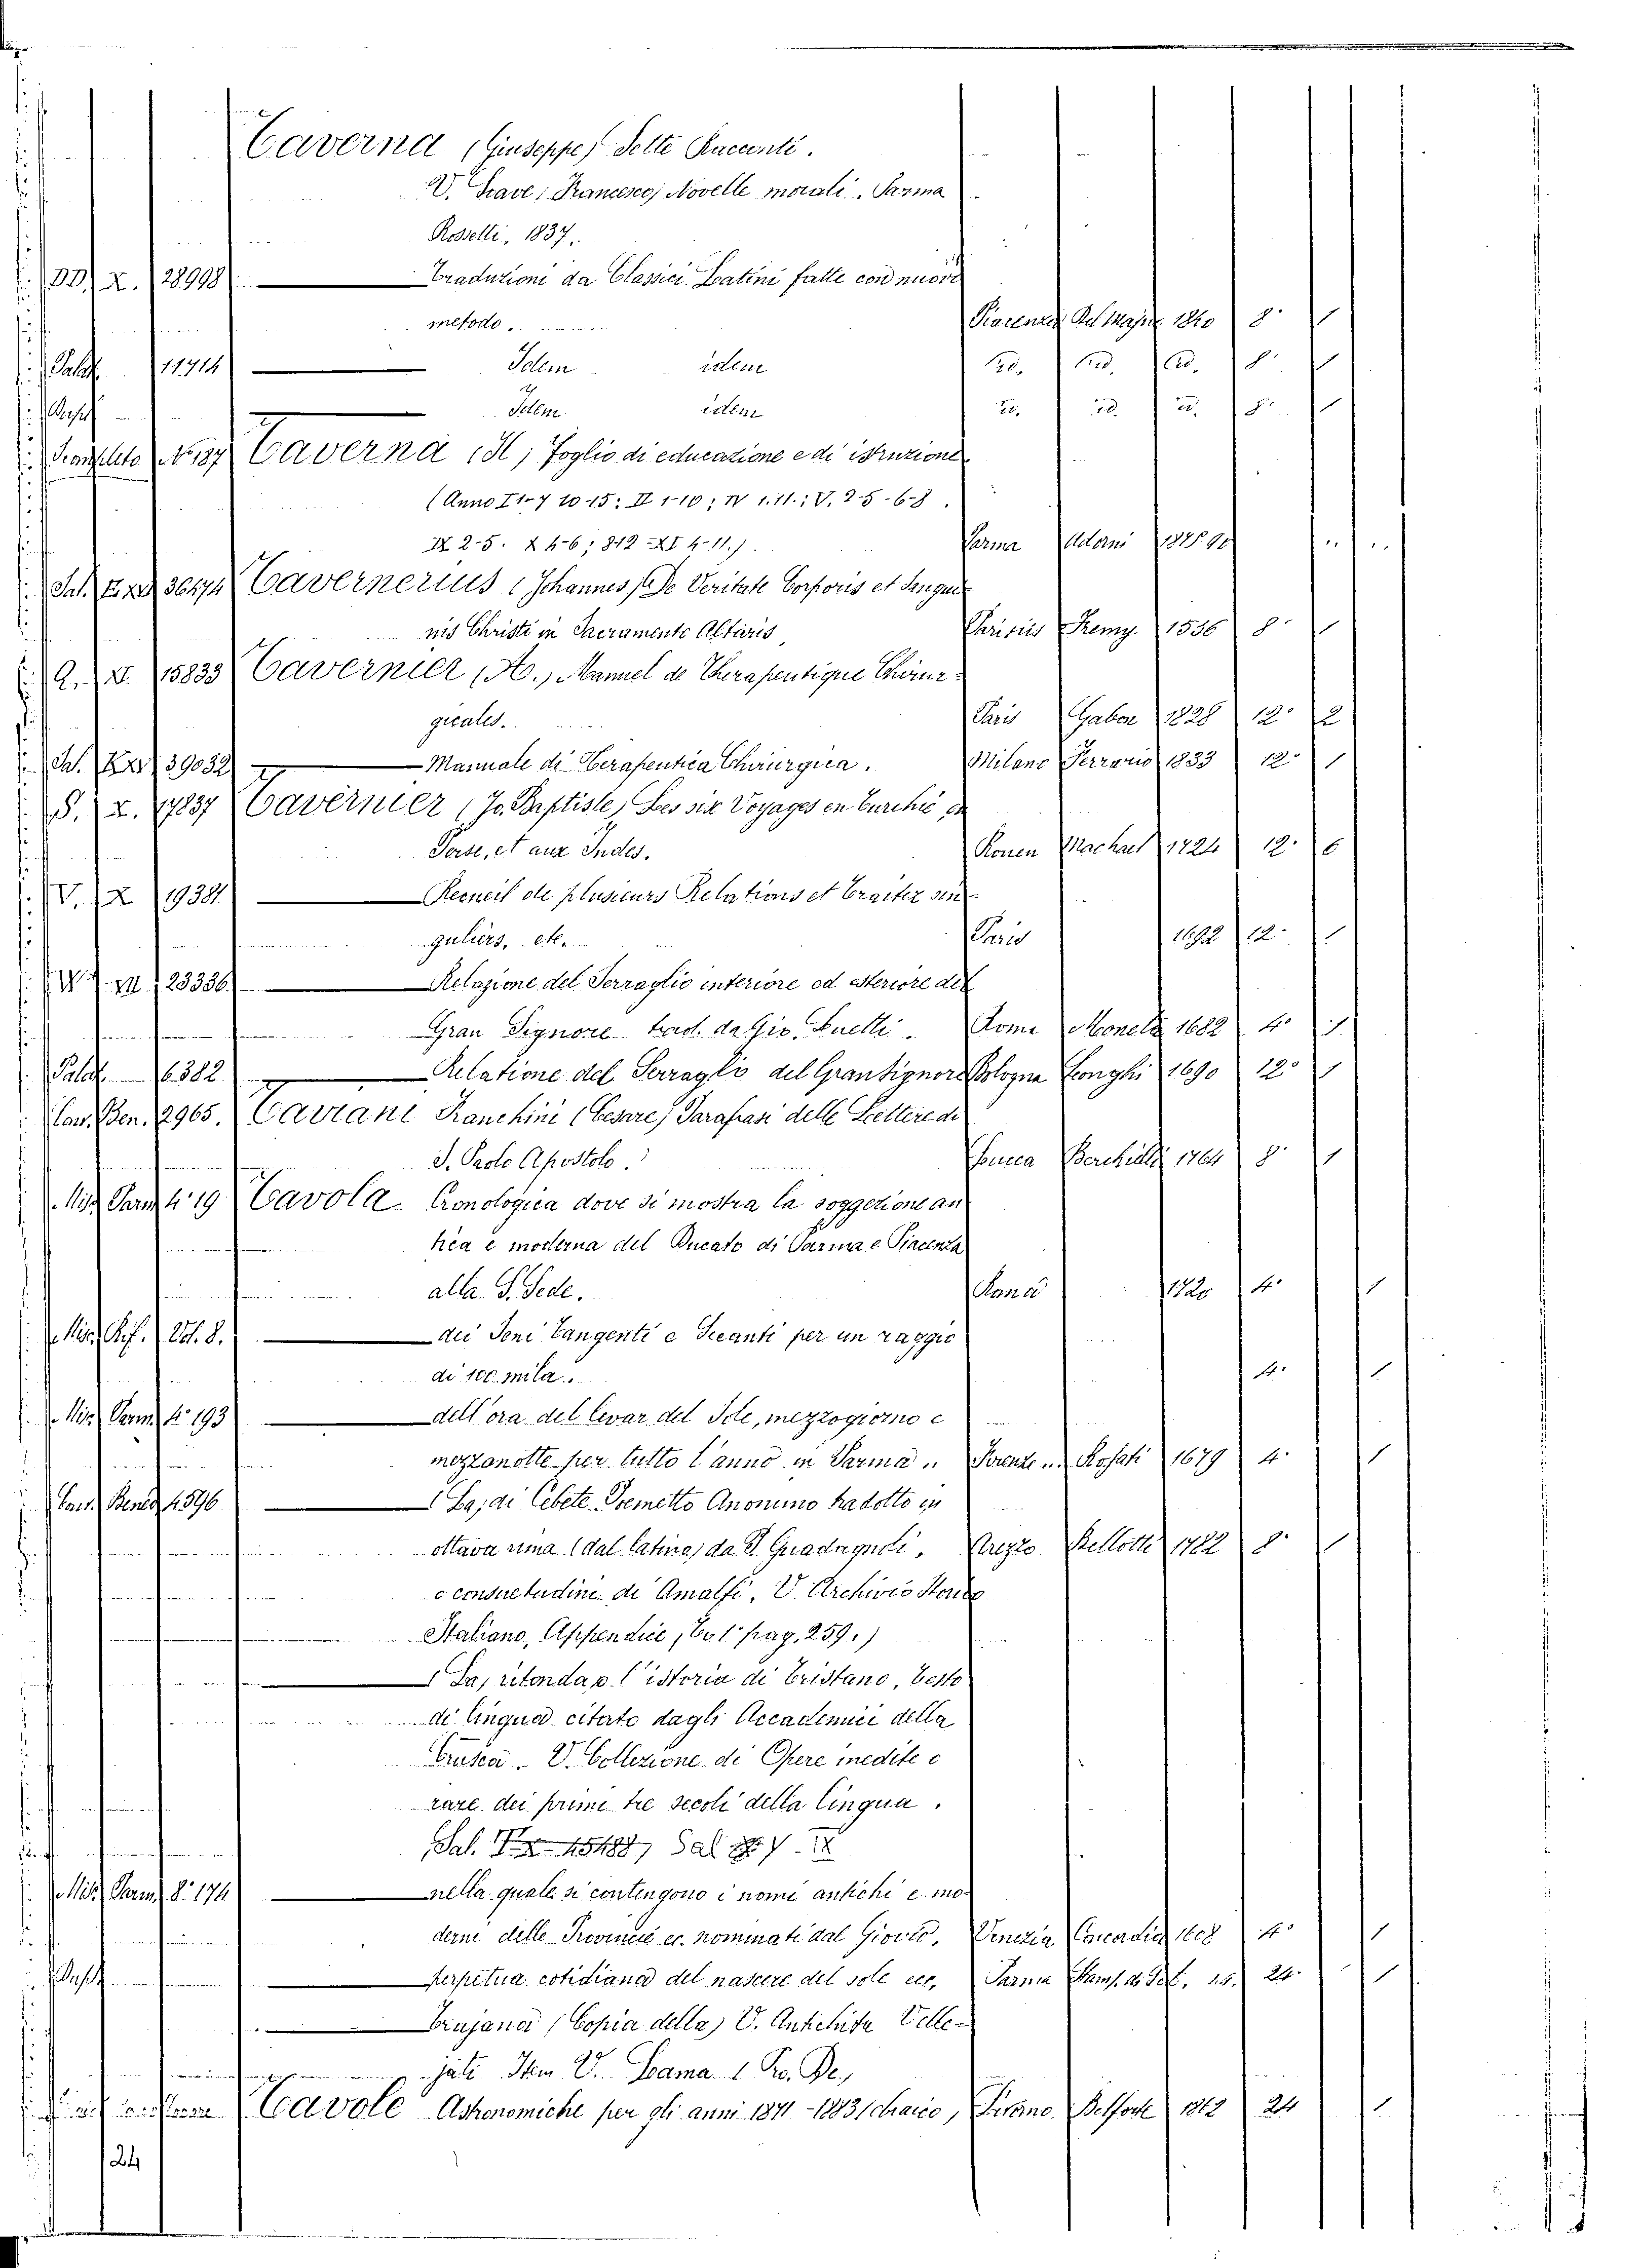 Taverna (Giuseppe) Sette Racconti.
V. Soave (Francesco) Novelle morali. Parma
Rosselli, 1837.
DD. X. 28998 ——— Traduzioni da Classici Latini fatte con nuovo
metodo. Piacenza Del Majno 1840 8° 1
Palat. 11714 ——— Idem idem id. id. id. 8° 1
——— Idem idem id. id. id. 8° 1
No 187 Taverna (Il) Foglio di educazione e di istruzione
(Anno I 1-7 10-15; II 1-10; IV 1.11.; V. 2 5-6-8.
IX 2-5. X 4-6; 8 12 - XI 4-11.). Parma Adorni
Sal. 36474 Tavernerius (Johannes) De Veritate Corporis et Sangui-
nis Christi in Sacramento Altaris, Parisiis Remy 1536 8° 1
Q. X. 15833 Tavernier (A.) Manuel de Therapeutique Chirur-
gicales. Paris Gabon 1828 12° 2
Sal. 39032 ——— Manuale di Terapeutica Chirurgica. Milano Ferrario 1833 12° 1
S. X. 17837 Tavernier (Jo. Baptiste) Les six Voyages en Turchie en
Perse, et aux Indes. Rouen Machuel 1724 12° 6
V. X. 19381 ——— Recueil de plusieurs Relations et Traitez sin-
guliers, etc. Paris 1692 12° 1
23336 ——— Relazione del Serraglio interiore ed esteriore del
Gran Signore trad. da Gio. Luetti. Roma Moneta 1682 4° 1
Palat. 6382 ——— Relatione del Serraglio del Gransignore Bologna Longhi 1690 12° 1
Ben. 2965. Taviani Ranchini (Cesare) Parafrasi delle Lettere di
S. Paolo Apostolo. Lucca Berchielli 1764 8° 1
Mis. Parm. 4° 19. Tavola Cronologica dove si mostra la soggezione an
tica e moderna del Ducato di Parma e Piacenza
alla S. Sede. Roma 1720 4° 1
Mis. 8. ——— dei Seni Tangenti e Secanti per un raggio
di 100. mila. 4° 1
Mis. Parm. 4° 193 ——— dell'ora del levar del Sole, mezzogiorno e
mezzanotte per tutto l'anno in Parma. Rosati 1679 4° 1
4596. ——— (La) di Cebete Poemetto Anonimo tradotto in
ottava rima (dal latino) da P. Guadagnoli. Arezzo Bellotti 1782 8° 1
e consuetudini di Amalfi, V. Archivio Storico
Italiano, Appendice, To 1° pag. 259.)
——— (La) ritonda o l'istoria di Tristano, testo
di lingua citato dagli Accademici della
Crusca. V. Collezione di Opere inedite e
rare dei primi tre secoli della lingua.
Sal.
Mis. Parm. 8° 174 ——— nella quale si contengono i nomi antichi e mo-
derni delle Provincie ec. nominati dal Giovio, Venezia Concordia 1608 4° 1
——— perpetua cotidiana del nascere del sole ecc. Parma 24° 1
——— Trajana (Copia della) V. Antichita Velle-
jati Item V. Lama (Po. De)
Tavole Astronomiche per gli anni 1871-1883 Belforte 24 1
24